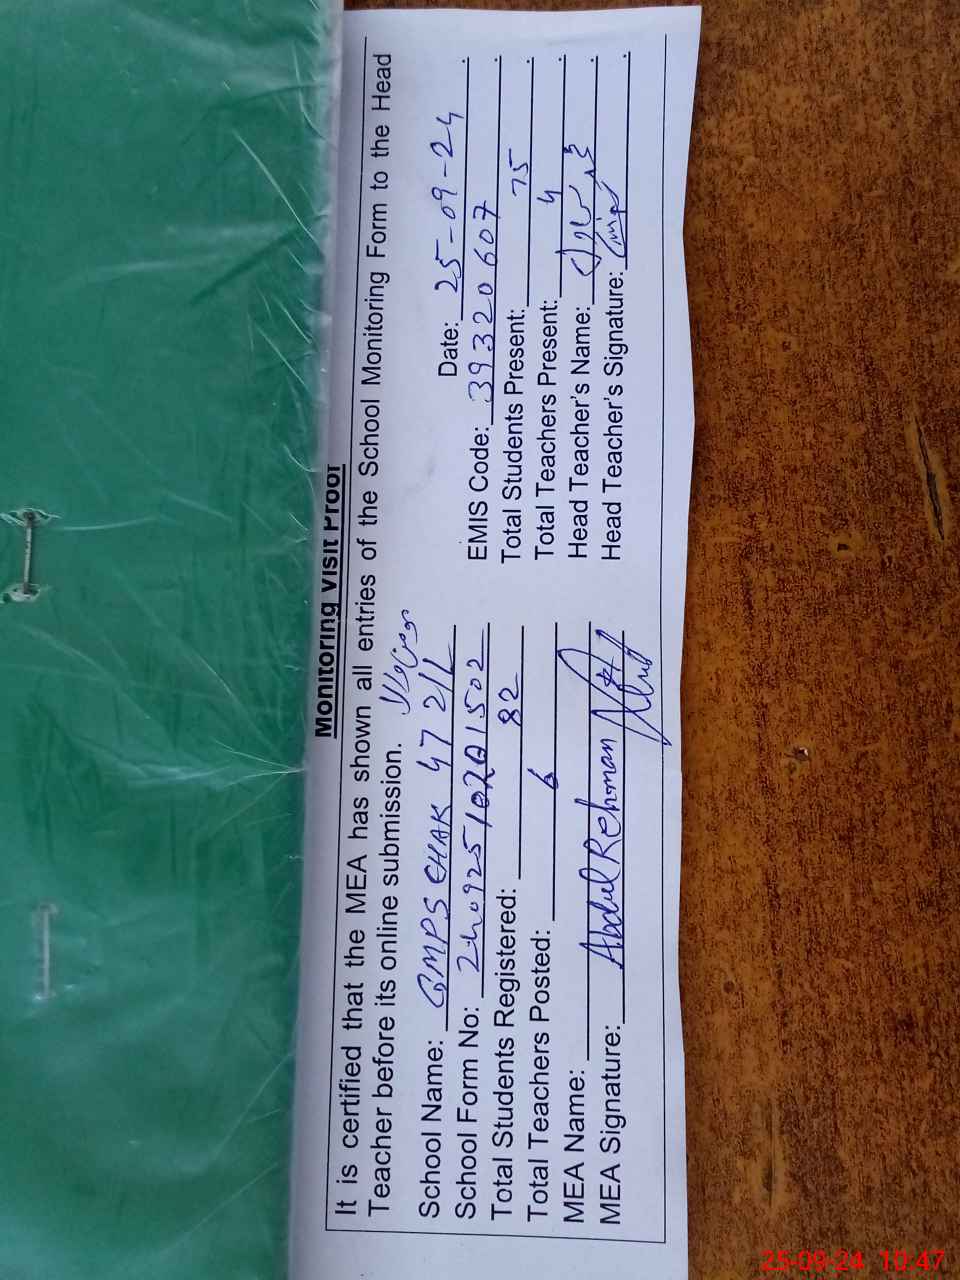 Monitoring Visit Proof
It is certified that the MEA has shown all entries of the School Monitoring Form to the Head
Teacher before its online submission.
School Name: GMPS CHAK 47 2/L Date: 25-09-24
School Form No: EMIS Code: 39320607
Total Students Registered: 82 Total Students Present: 75
Total Teachers Posted: 6 Total Teachers Present: 4
MEA Name: Abdul Rehman Head Teacher's Name:
MEA Signature: Head Teacher's Signature:
25-09-24 10:47